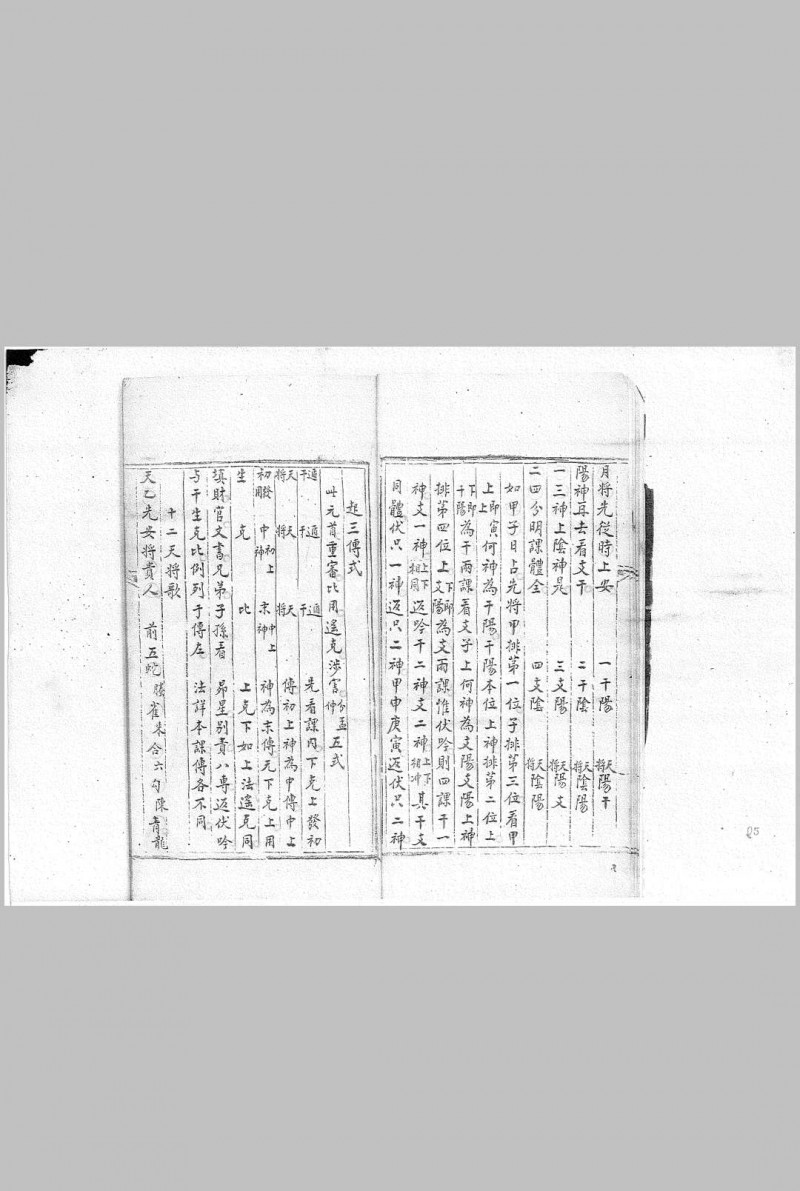 月將先從時上安 一干陽 天將陽干
陽神再去看支干 二干陰 天將陰陽
一三神上陰神是 三支陽 天將陽支
二四分明課體全 四支陰 天將陰陽
如甲子日占先將甲排第一位子排第三位看甲
上即寅上何神為干陽干陽本位上神排第二位上
下即干陽為干兩課看支子上何神為支陽支陽上神
排第四位上下即支陽為支兩課惟伏吟則四課干一
神支一神上下相同返吟干二神支二神上下相冲其干支
同體伏只一神返只二神甲申庚寅返伏只二神
起三傳式
此元首重審比用遙克涉害分孟仲五式
遁干 遁干 遁干 先看課內下克上發初
天將 天將 天將 傳初上神為中傳中上
發用初 初上神中 中上神末 神為末傳元下克上用
生 克 比 上克下如上法遙克同
填財官文書兄弟子孫看 昴星別責八專返伏吟
与干生克比例列于傳左 法詳本課傳各不同
十二天將歌
天乙先安將貴人 前五蛇騰雀朱合六勾陳青龍
25